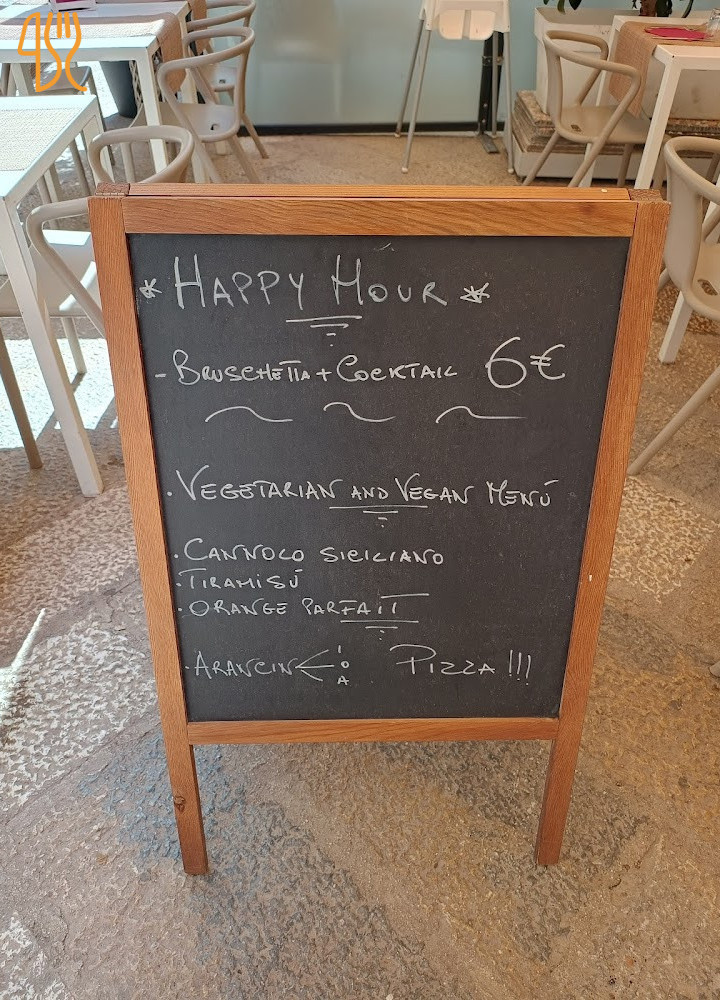 * HAPPY HOUR *
- BRUSCHETTA + COCKTAIL 6€
· VEGETARIAN AND VEGAN MENÚ
· CANNOLO SICILIANO
· TIRAMISÚ
· ORANGE PARFAIT
· ARANCIN< I O A PIZZA !!!